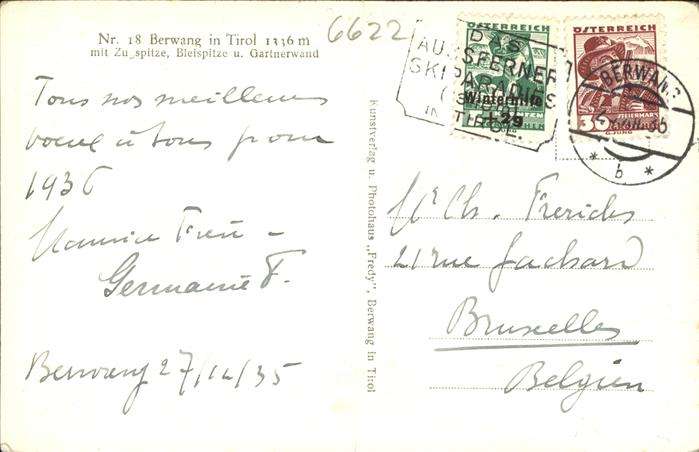 Nr. 18 Berwang in Tirol 1336 m
mit Zu spitze, Bleispitze u. Gartnerwand
6622
Tous nos meilleurs
voeux à tous pour
1936
Maurice
Germaine F.
Berwang 27/12/35
Kunstverlag u. Photohaus „Fredy“, Berwang in Tirol
DAS
AUSSERFERNER
SKIPARADIES
IN TIROL
ÖSTERREICH
Winterhilfe
ÖSTERREICH
STEIERMARK
BERWANG
35
* b *
Mr Ch. Frerichs
21 rue Jachard
Bruxelles
Belgien